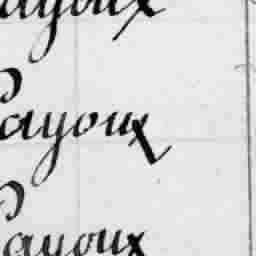 ayoux
Payoux
Payoux